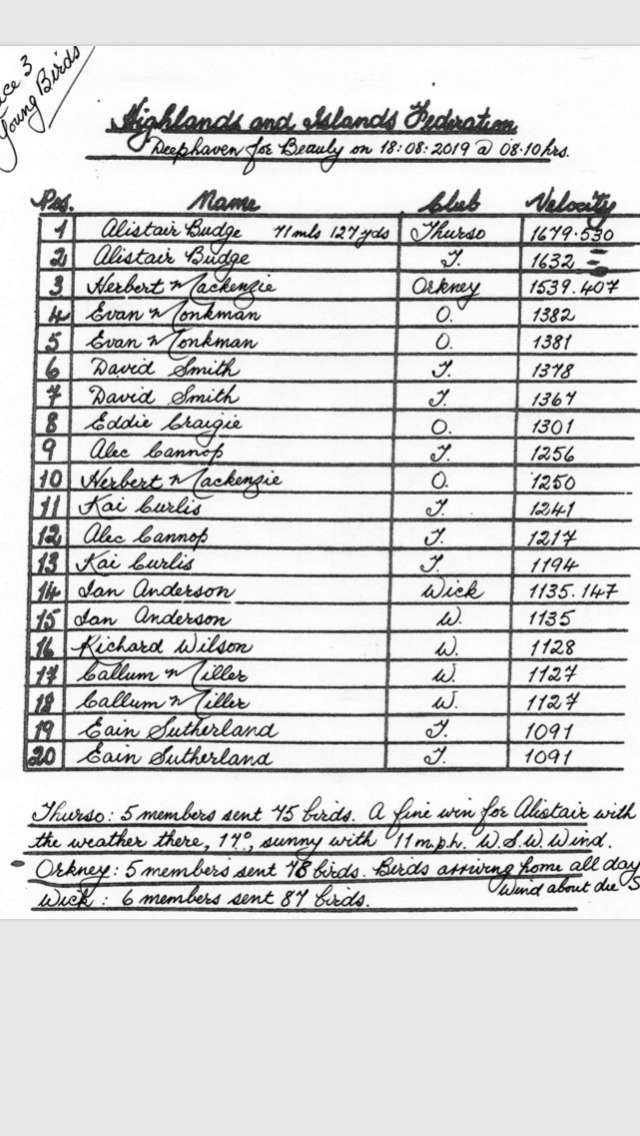 ace 3
Young Birds
Highlands and Islands Federation
Deephaven for Beauly on 18:08:2019 @ 08·10hrs.
Pos. Name Club Velocity
1 Alistair Budge 71mls 127yds Thurso 1679·530
2 Alistair Budge T. 1632
3 Herbert Mackenzie Orkney 1539.407
4 Evan Monkman O. 1382
5 Evan Monkman O. 1381
6 David Smith T. 1378
7 David Smith T. 1367
8 Eddie Craigie O. 1301
9 Alec Cannop T. 1256
10 Herbert Mackenzie O. 1250
11 Kai Curlis T. 1241
12 Alec Cannop T. 1217
13 Kai Curlis T. 1194
14 Ian Anderson Wick 1135.147
15 Ian Anderson W. 1135
16 Richard Wilson W. 1128
17 Callum Miller W. 1127
18 Callum Miller W. 1127
19 Eain Sutherland T. 1091
20 Eain Sutherland T. 1091
Thurso: 5 members sent 75 birds. A fine win for Alistair with
the weather there, 17°, sunny with 11 m.p.h. W.S.W. Wind.
Orkney: 5 members sent 78 birds. Birds arriving home all day
Wind about due S
Wick: 6 members sent 87 birds.